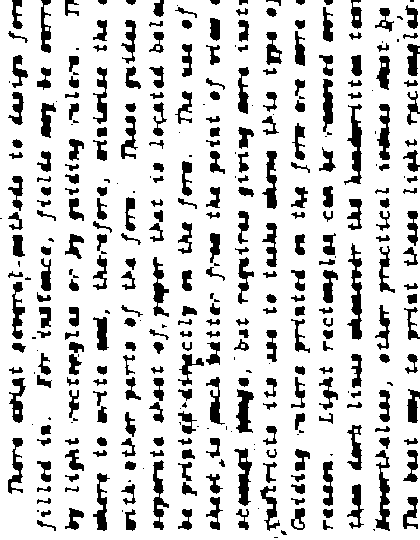 There exist several methods to design form
filled in. For instance, fields may be surro
by light rectangles or by guiding rulers. T
where to write and, therefore, minimize the
with other parts of the form. These guides
separate sheet of paper that is located belo
be printed directly on the form. The use of
sheet is much better from the point of view o
but requires giving more instr
restricts its use to tasks where this type of
Guiding rulers printed on the form are more
reason. Light rectangles can be removed more
than dark lines whenever the handwritten tex
Nevertheless, other practical issues must be
The best way to print these light rectangles